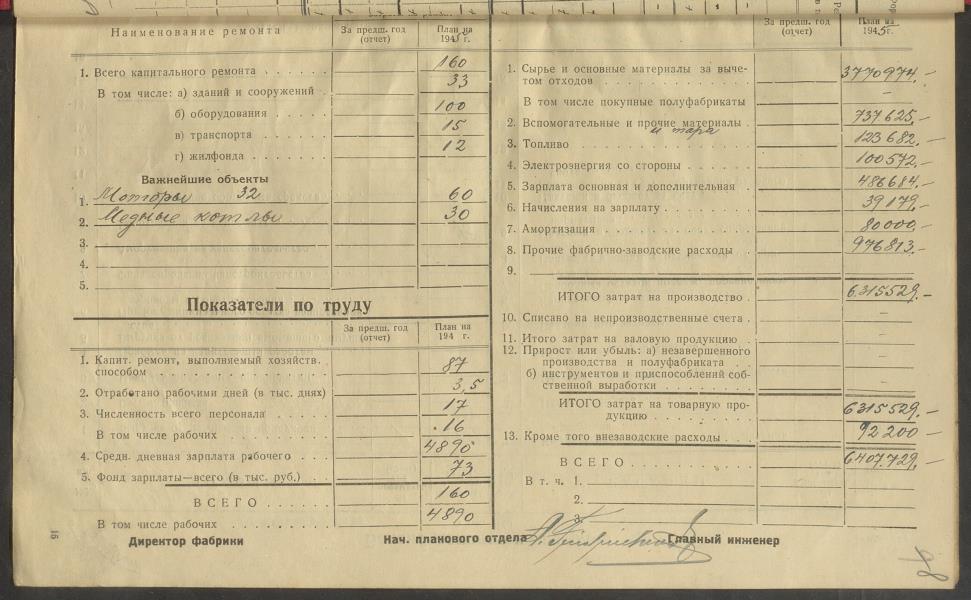 Наименование ремонта
За предш. год (отчет)
План на 1945 г.
1. Всего капитального ремонта 160
В том числе: а) зданий и сооружений 33
б) оборудования 100
в) транспорта 15
г) жилфонда 12
Важнейшие объекты
1. Моторы 32 60
2. Медные котлы 30
3.
4.
5.
Показатели по труду
За предш. год (отчет)
План на 194 г.
1. Капит. ремонт, выполняемый хозяйств.
способом 87
2. Отработано рабочими дней (в тыс. днях) 3,5
3. Численность всего персонала 17
В том числе рабочих 16
4. Средн. дневная зарплата рабочего 4890
5. Фонд зарплаты—всего (в тыс. руб.) 73
ВСЕГО 160
В том числе рабочих 4890
За предш. год (отчет)
План на 1945 г.
1. Сырье и основные материалы за выче-
том отходов 3770974.-
В том числе покупные полуфабрикаты -
2. Вспомогательные и прочие материалы 737625.-
и тара
3. Топливо 123682.-
4. Электроэнергия со стороны 100572.-
5. Зарплата основная и дополнительная 486684.-
6. Начисления на зарплату 39179.-
7. Амортизация 80000.-
8. Прочие фабрично-заводские расходы 976813.-
9.
ИТОГО затрат на производство 6.315529.-
10. Списано на непроизводственные счета -
11. Итого затрат на валовую продукцию -
12. Прирост или убыль: а) незавершенного
производства и полуфабриката -
б) инструментов и приспособлений соб-
ственной выработки -
ИТОГО затрат на товарную про-
дукцию 6315529.-
13. Кроме того внезаводские расходы 92200-
ВСЕГО 6407.729.-
В т. ч. 1.
2.
3.
Директор фабрики Нач. планового отдела Главный инженер
16